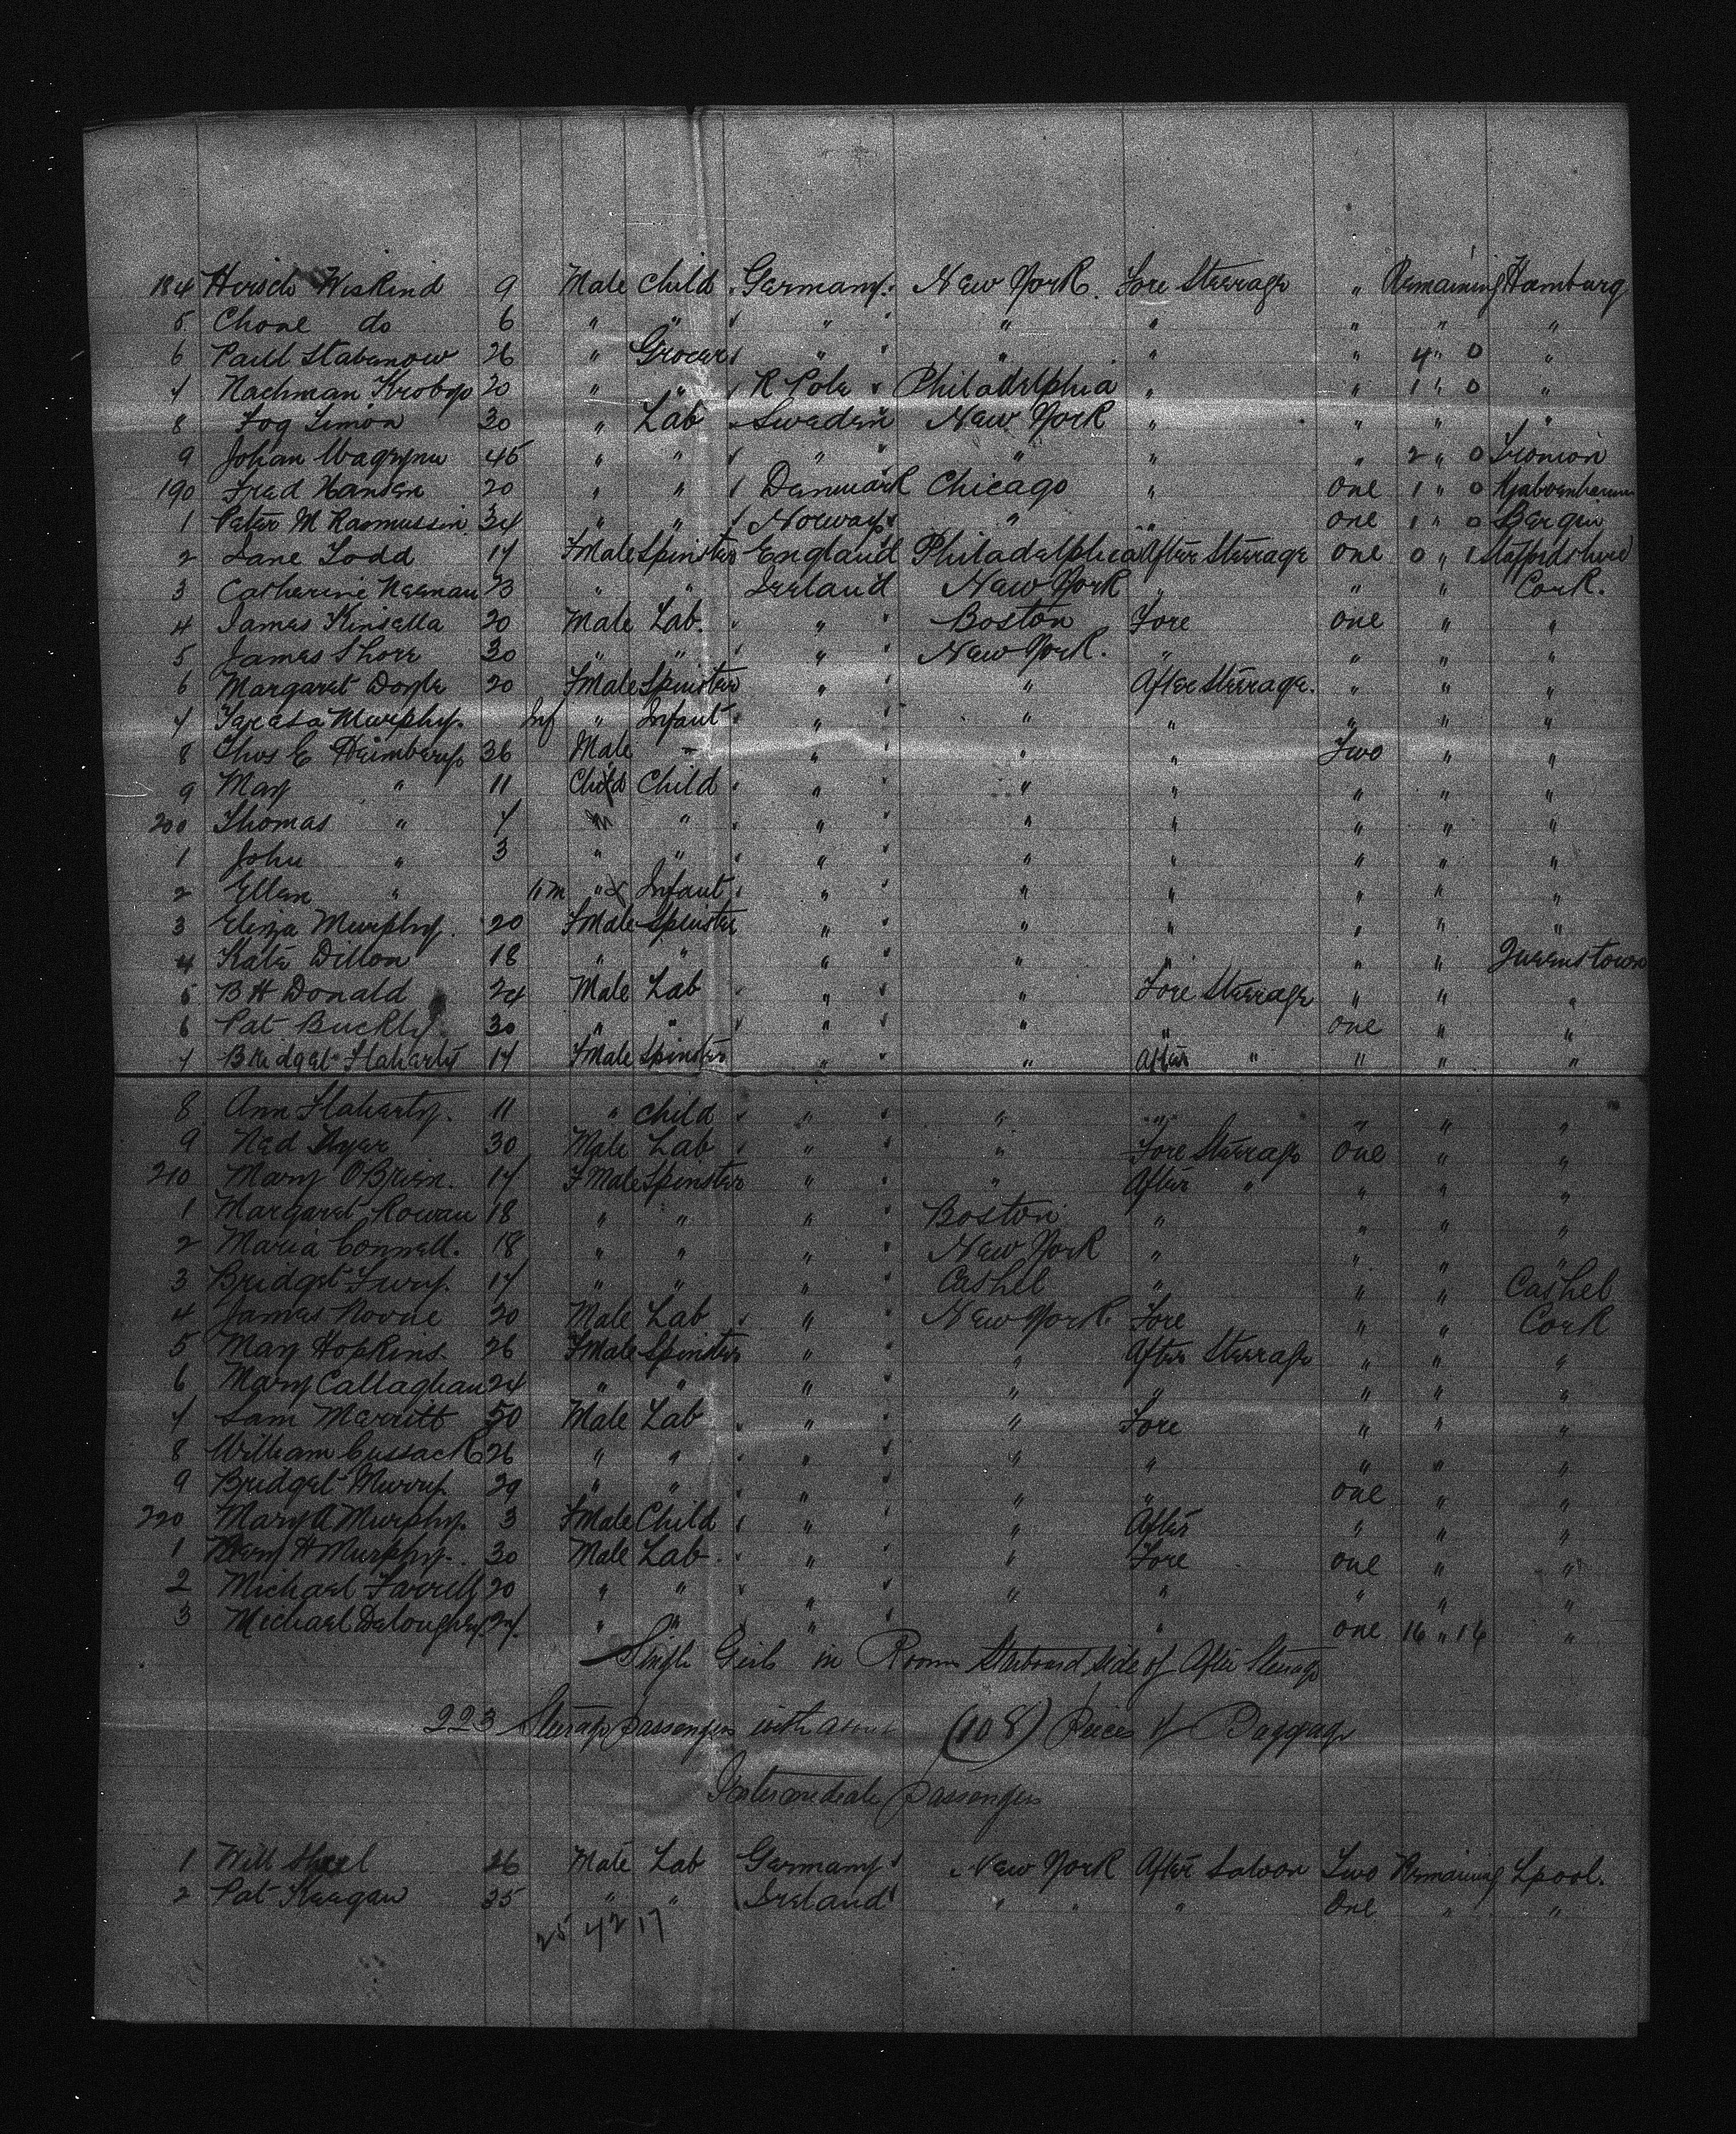 184 Hirsch Wiskind 9 Male Child Germany New York. Fore Steerage " Remaining Hamburg
5 Chone do 6 " " " " " " " "
6 Paul Stabenow 26 " Grocer " " " " 4 " 0 "
7 Nachman 20 " " R Pole Philadelphia " " 1 " 0 "
8 Simon 30 " Lab Sweden New York " " " "
9 Johan 45 " " " " " " 2 " 0
190 Fred Hansen 20 " " Denmark Chicago " One 1 " 0
1 Peter M Rasmussin 34 " " Norway " " one 1 " 0 Bergen
2 Jane Todd 17 FMale Spinster England Philadelphia After Steerage one 0 " 1 Staffordshire
3 Catherine 23 " " Ireland New York " " " Cork.
4 James Kinsella 20 Male Lab. " Boston Fore one " "
5 James Shore 30 " " " New York. " " " "
6 Margaret Doyle 20 FMale Spinster " " After Steerage. " " "
7 Teresa Murphy. Inf " Infant " " " " " "
8 Thos E 36 Male - " " " Two " "
9 May " 11 Child Child " " " " " "
200 Thomas " 7 M " " " " " " "
1 John " 3 " " " " " " " "
2 Ellen " 11m " Infant " " " " " "
3 Eliza Murphy. 20 FMale Spinster " " " " " "
4 Kate Dillon 18 " " " " " " " Queenstown
5 B H Donald 24 Male Lab " " Fore Steerage " " "
6 Pat Buckly 30 " " " " " one " "
7 Bridget Flaharty 17 FMale Spinster " " After " " " "
8 Ann Flaharty. 11 " Child " " " " " "
9 Ned Dyer 30 Male Lab " " Fore Steerage One " "
210 Mary OBrien. 17 FMale Spinster " " After " " " "
1 Margaret Rowan 18 " " " Boston " " " "
2 Maria Connell. 18 " " " New York " " " "
3 Bridget 17 " " " Cashel " " " Cashel
4 James 20 Male Lab " New York Fore " " Cork
5 May Hopkins. 26 FMale Spinster " " After Steerage " " "
6 Mary Callaghan 24 " " " " " " " "
7 Sam Merritt 50 Male Lab " " Fore " " "
8 William Cussack 26 " " " " " " " "
9 Bridget 29 " " " " " one " "
220 Mary A Murphy. 3 FMale Child " " After " " "
1 H Murphy. 30 Male Lab " " Fore one " "
2 Michael Farrell 20 " " " " " " " "
3 Michael Deloughey. 27 " " " " " one 16 " 16 "
Single Girls in Room Starboard side of After Steerage
223 Steerage passengers with about (108) Pieces of Baggage
Intermediate passengers
1 Will 26 Male Lab Germany New York After Saloon Two Remaining Lpool.
2 Pat Keegan 35 " " Ireland " " " One " "
25 42 17